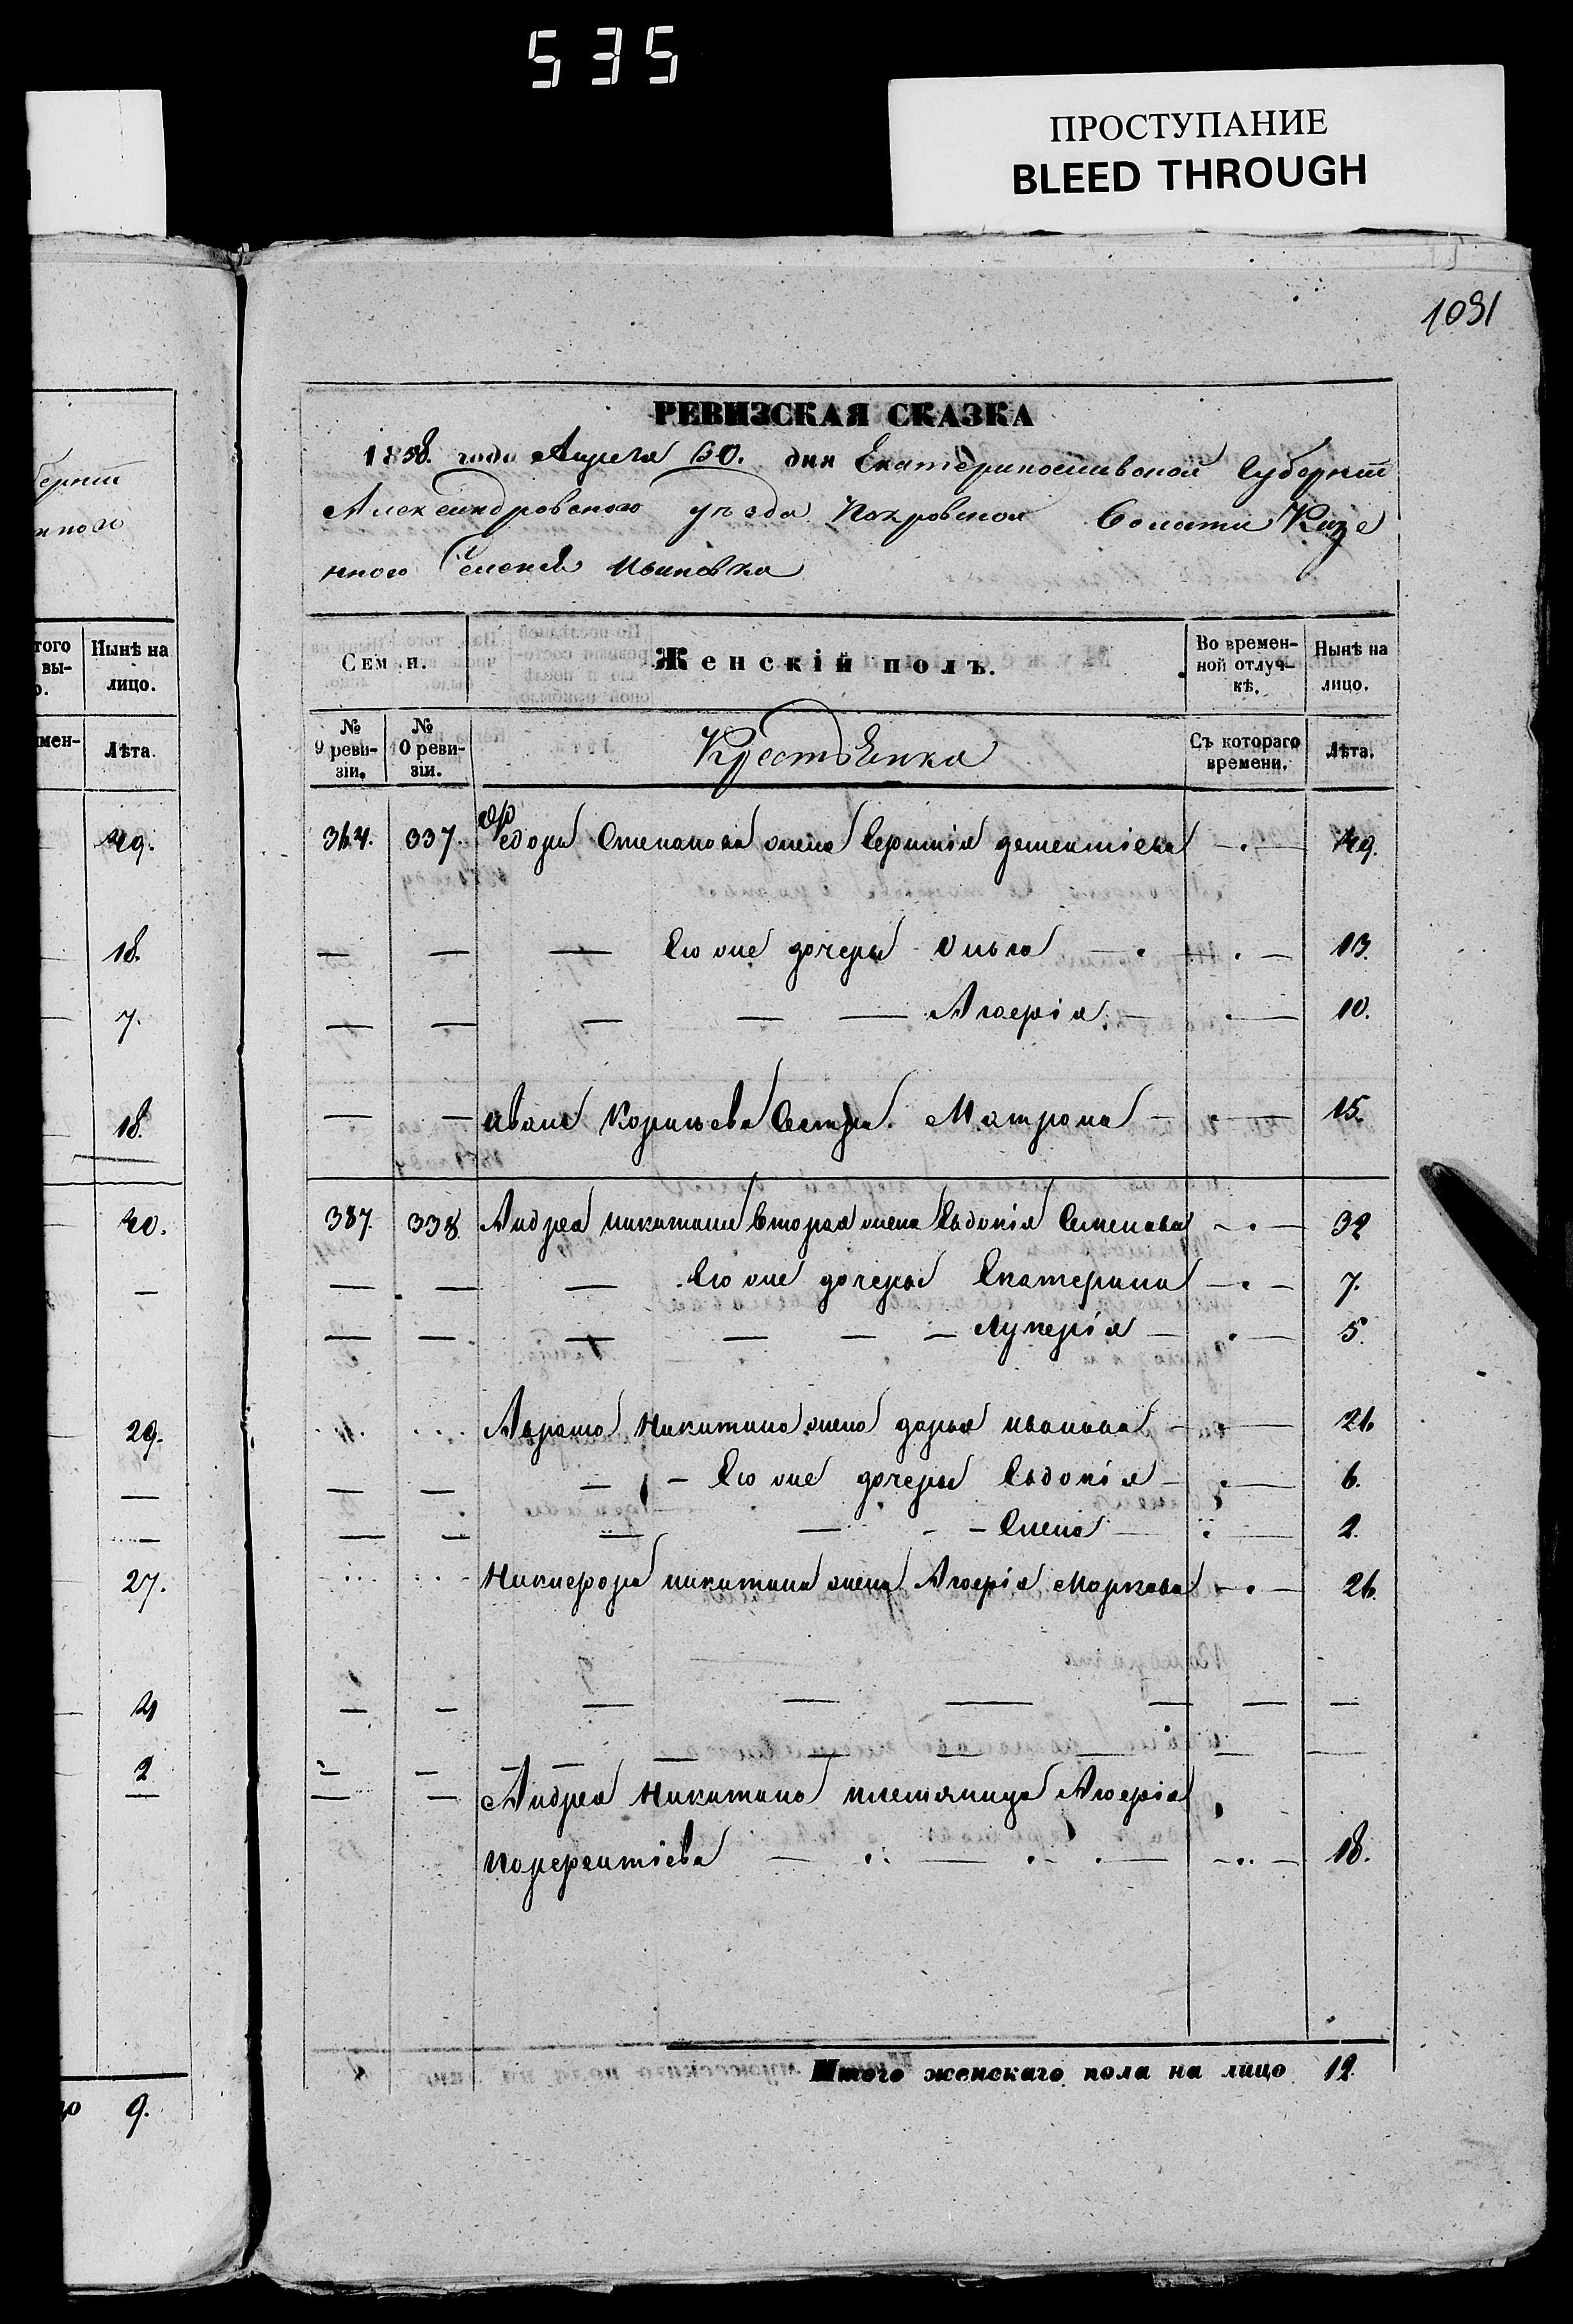 535
ПРОСТУПАНИЕ
BLEED THROUGH
1091
РЕВИЗСКАЯ СКАЗКА
1858. года Апреля 30. дня Екатеринославской Губернии
Александровского уезда Покровской Волости Казе
нного Селения Ивановка
того вы-
Нынѣ на лицо.
Лѣта.
49.
18.
7.
18.
20.
29.
27.
4
2
9.
Семьи.
Женскій полъ.
Во времен-
ной отлуч-
кѣ.
Нынѣ на
лицо.
№
9 реви-
зіи.
№
10 реви-
зіи.
Крестьянка
Съ котораго
времени.
Лѣта.
364. 337. Федора Степанова жена Ефимія дементіева — 49.
— — — Его же дочеры Ольга — 13.
— — — — — Агафія — 10.
— — Ивана Корнѣева Сестра Матрона — 15.
387. 338. Андрея никитина вторая жена Евдокія Семенова — 32
— — — Его же дочеры Екатерина — 7.
— — — — — Лукерія — 5.
Аврама Никитина жена дарья иванова — 26
— — — Его же дочеры Евдокія — 6.
— — — — Елена — 2.
Никифора никитина жена Агафія Маркова — 26.
— — — — — — — —
— — Андрея Никитина племяница Агафія
— 18.
Итого женскаго пола на лицо 12.